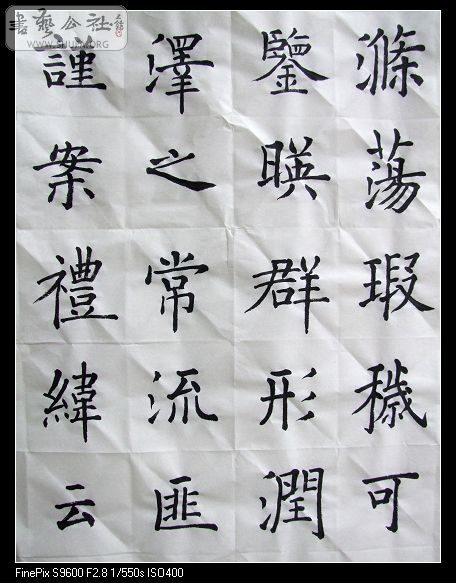 滌蕩瑕穢可
鑒暎群形潤
澤之常流匪
謹案禮緯云
書藝公社
FinePix S9600 F2.8 1/550s ISO400